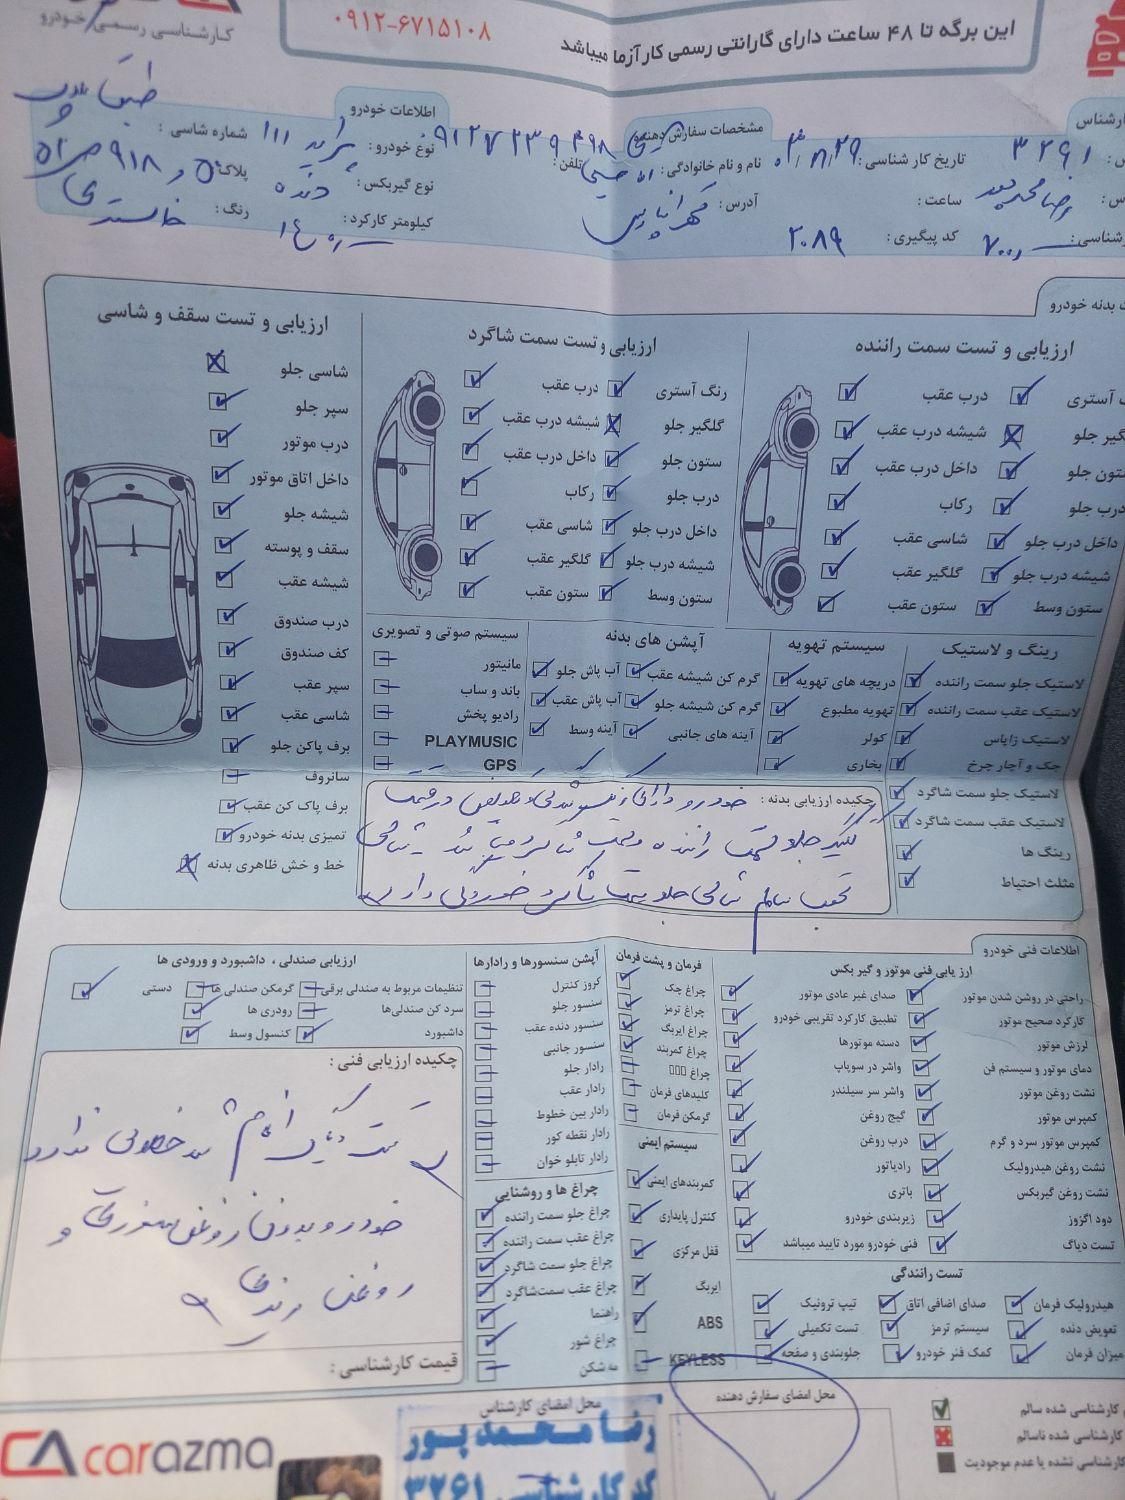 کارشناسی رسمی خودرو
۰۹۱۲-۶۷۱۵۱۰۸
این برگه تا ۴۸ ساعت دارای گارانتی رسمی کارآزما میباشد
مشخصات سفارش دهنده
اطلاعات خودرو
۳۲۶۱
تاریخ کار شناسی :
نام و نام خانوادگی :
تلفن :
نوع خودرو : پراید ۱۱۱
شماره شاسی : طبق
ساعت :
آدرس :
نوع گیربکس : دنده
پلاک :
کد پیگیری : ۲۰۸۹
کیلومتر کارکرد :
رنگ : خاکستری
بدنه خودرو
ارزیابی و تست سمت راننده
آستری
درب عقب
گیر جلو
شیشه درب عقب
ستون جلو
داخل درب عقب
درب جلو
رکاب
داخل درب جلو
شاسی عقب
شیشه درب جلو
گلگیر عقب
ستون وسط
ستون عقب
ارزیابی و تست سمت شاگرد
رنگ آستری
درب عقب
گلگیر جلو
شیشه درب عقب
ستون جلو
داخل درب عقب
درب جلو
رکاب
داخل درب جلو
شاسی عقب
شیشه درب جلو
گلگیر عقب
ستون وسط
ستون عقب
ارزیابی و تست سقف و شاسی
شاسی جلو
سپر جلو
درب موتور
داخل اتاق موتور
شیشه جلو
سقف و پوسته
شیشه عقب
درب صندوق
کف صندوق
سپر عقب
شاسی عقب
برف پاکن جلو
سانروف
برف پاک کن عقب
تمیزی بدنه خودرو
خط و خش ظاهری بدنه
رینگ و لاستیک
لاستیک جلو سمت راننده
لاستیک عقب سمت راننده
لاستیک زاپاس
جک و آچار چرخ
لاستیک جلو سمت شاگرد
لاستیک عقب سمت شاگرد
رینگ ها
مثلث احتیاط
سیستم تهویه
دریچه های تهویه
تهویه مطبوع
کولر
بخاری
آپشن های بدنه
گرم کن شیشه عقب
آب پاش جلو
گرم کن شیشه جلو
آب پاش عقب
آینه های جانبی
آینه وسط
سیستم صوتی و تصویری
مانیتور
باند و ساب
رادیو پخش
PLAYMUSIC
GPS
چکیده ارزیابی بدنه : خودرو دارای تعویض در قسمت
گلگیر جلو سمت راننده و سمت شاگرد
عقب سالم شاسی جلو سمت شاگرد خوردگی دارد
اطلاعات فنی خودرو
ارزیابی فنی موتور و گیربکس
راحتی در روشن شدن موتور
صدای غیر عادی موتور
کارکرد صحیح موتور
تطبیق کارکرد تقریبی خودرو
لرزش موتور
دسته موتورها
دمای موتور و سیستم فن
واشر در سوپاپ
نشت روغن موتور
واشر سر سیلندر
کمپرس موتور
گیج روغن
کمپرس موتور سرد و گرم
درب روغن
نشت روغن هیدرولیک
رادیاتور
نشت روغن گیربکس
باتری
دود اگزوز
زیربندی خودرو
تست دیاگ
فنی خودرو مورد تایید میباشد
تست رانندگی
هیدرولیک فرمان
صدای اضافی اتاق
تیپ ترونیک
تعویض دنده
سیستم ترمز
تست تکمیلی
میزان فرمان
کمک فنر خودرو
جلوبندی و صفحه
فرمان و پشت فرمان
چراغ چک
چراغ ترمز
چراغ ایربگ
چراغ کمربند
چراغ
کلیدهای فرمان
گرمکن فرمان
سیستم ایمنی
کمربندهای ایمنی
کنترل پایداری
قفل مرکزی
ایربگ
ABS
KEYLESS
آپشن سنسورها و رادارها
کروز کنترل
سنسور جلو
سنسور دنده عقب
سنسور جانبی
رادار جلو
رادار عقب
رادار بین خطوط
رادار نقطه کور
رادار تابلو خوان
چراغ ها و روشنایی
چراغ جلو سمت راننده
چراغ عقب سمت راننده
چراغ جلو سمت شاگرد
چراغ عقب سمت شاگرد
راهنما
چراغ شور
مه شکن
ارزیابی صندلی ، داشبورد و ورودی ها
تنظیمات مربوط به صندلی برقی
گرمکن صندلی ها
دستی
سرد کن صندلی‌ها
رودری ها
داشبورد
کنسول وسط
چکیده ارزیابی فنی :
تست دیاگ انجام شد خطایی ندارد
خودرو بدون روغن سوزی و
روغن ریزی
قیمت کارشناسی :
محل امضای سفارش دهنده
محل امضای کارشناس
رضا محمدپور
کد کارشناسی ۳۲۶۱
کارشناسی شده سالم
کارشناسی شده ناسالم
کارشناسی نشده یا عدم موجودیت
carazma